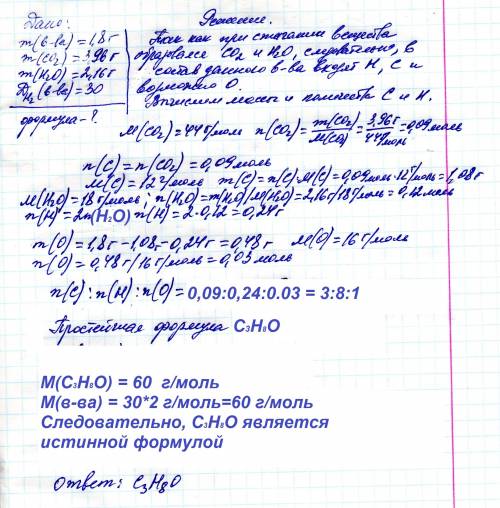 Дано:
m(в-ва)=1,8г
m(CO₂)=3,96г
m(H₂O)=2,16г
D H₂(в-ва)=30
формула-?
Решение.
Так как при сжигании вещества
образовался CO₂ и H₂O, следовательно, в
состав данного в-ва входят H, C и
возможно O.
Вычислим массы и количества C и H.
M(CO₂)=44г/моль n(CO₂)=m(CO₂)/M(CO₂)=3,96г/44г/моль=0,09моль
n(C)=n(CO₂)=0,09моль
M(C)=12г/моль m(C)=n(C)·M(C)=0,09моль·12г/моль=1,08г
M(H₂O)=18г/моль; n(H₂O)=m(H₂O)/M(H₂O)=2,16г/18г/моль=0,12моль
n(H)=2n(H₂O) n(H)=2·0,12=0,24г
m(O)=1,8г-1,08г-0,24г=0,48г M(O)=16г/моль
n(O)=0,48г/16г/моль=0,03моль
n(C):n(H):n(O)=0,09:0,24:0.03 = 3:8:1
Простейшая формула C₃H₈O
M(C₃H₈O) = 60 г/моль
M(в-ва) = 30*2 г/моль=60 г/моль
Следовательно, C₃H₈O является
истинной формулой
Ответ: C₃H₈O